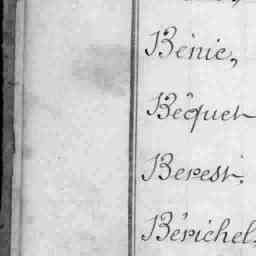 Bénic,
Béquet
Berest,
Bérichel,